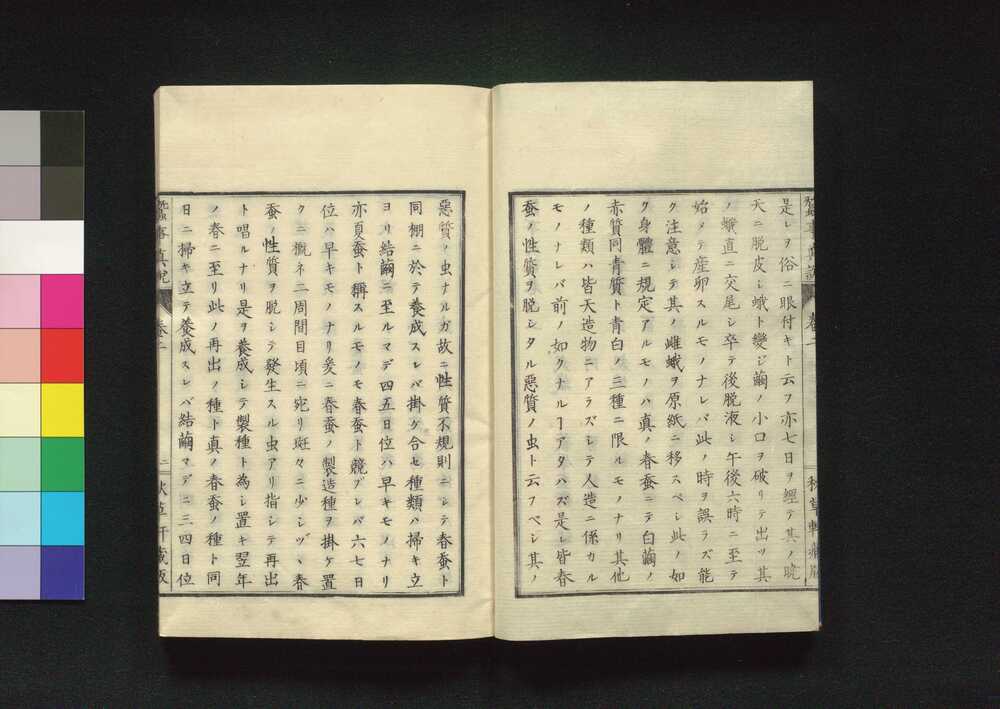 是レヲ俗ニ眼付キト云フ亦七日ヲ經テ其ノ暁
天ニ脱皮シ蛾ト變ジ繭ノ小口ヲ破リテ出ツ其
ノ蛾直ニ交尾シ卒テ後脱液シ午後六時ニ至テ
始メテ産卵スルモノナレバ此ノ時ヲ誤ラズ能
ク注意シテ其ノ雌蛾ヲ原紙ニ移スベシ此ノ如
ク身體ニ規定アルモノハ真ノ春蚕ニテ白繭ノ
赤質同青質ト青白ノ三種ニ限ルモノナリ其他
ノ種類ハ皆天造物ニアラズシテ人造ニ係カル
モノナレバ前ノ如クナルヿアタハズ是レ皆春
蚕ノ性質ヲ脱シタル惡質ノ虫ト云フベシ其ノ
惡質ノ虫ナルガ故ニ性質不規則ニシテ春蚕ト
同棚ニ於テ養成スレバ掛ケ合セ種類ハ掃キ立
ヨリ結繭ニ至ルマデ四五日位ハ早キモノナリ
亦夏蚕ト稱スルモノモ春蚕ト競ブレバ六七日
位ハ早キモノナリ爰ニ春蚕ノ製造種ヲ掛ケ置
クニ概ネ二周間目頃ニ宛リ斑々ニ少シヅヽ春
蚕ノ性質ヲ脱シテ發生スル虫アリ指シテ再出
ト唱ルナリ是ヲ養成シテ製種ト為シ置キ翌年
ノ春ニ至リ此ノ再出ノ種ト真ノ春蚕ノ種ト同
日ニ掃キ立テ養成スレバ結繭マデニ三四日位
蠶事真説 卷二 二